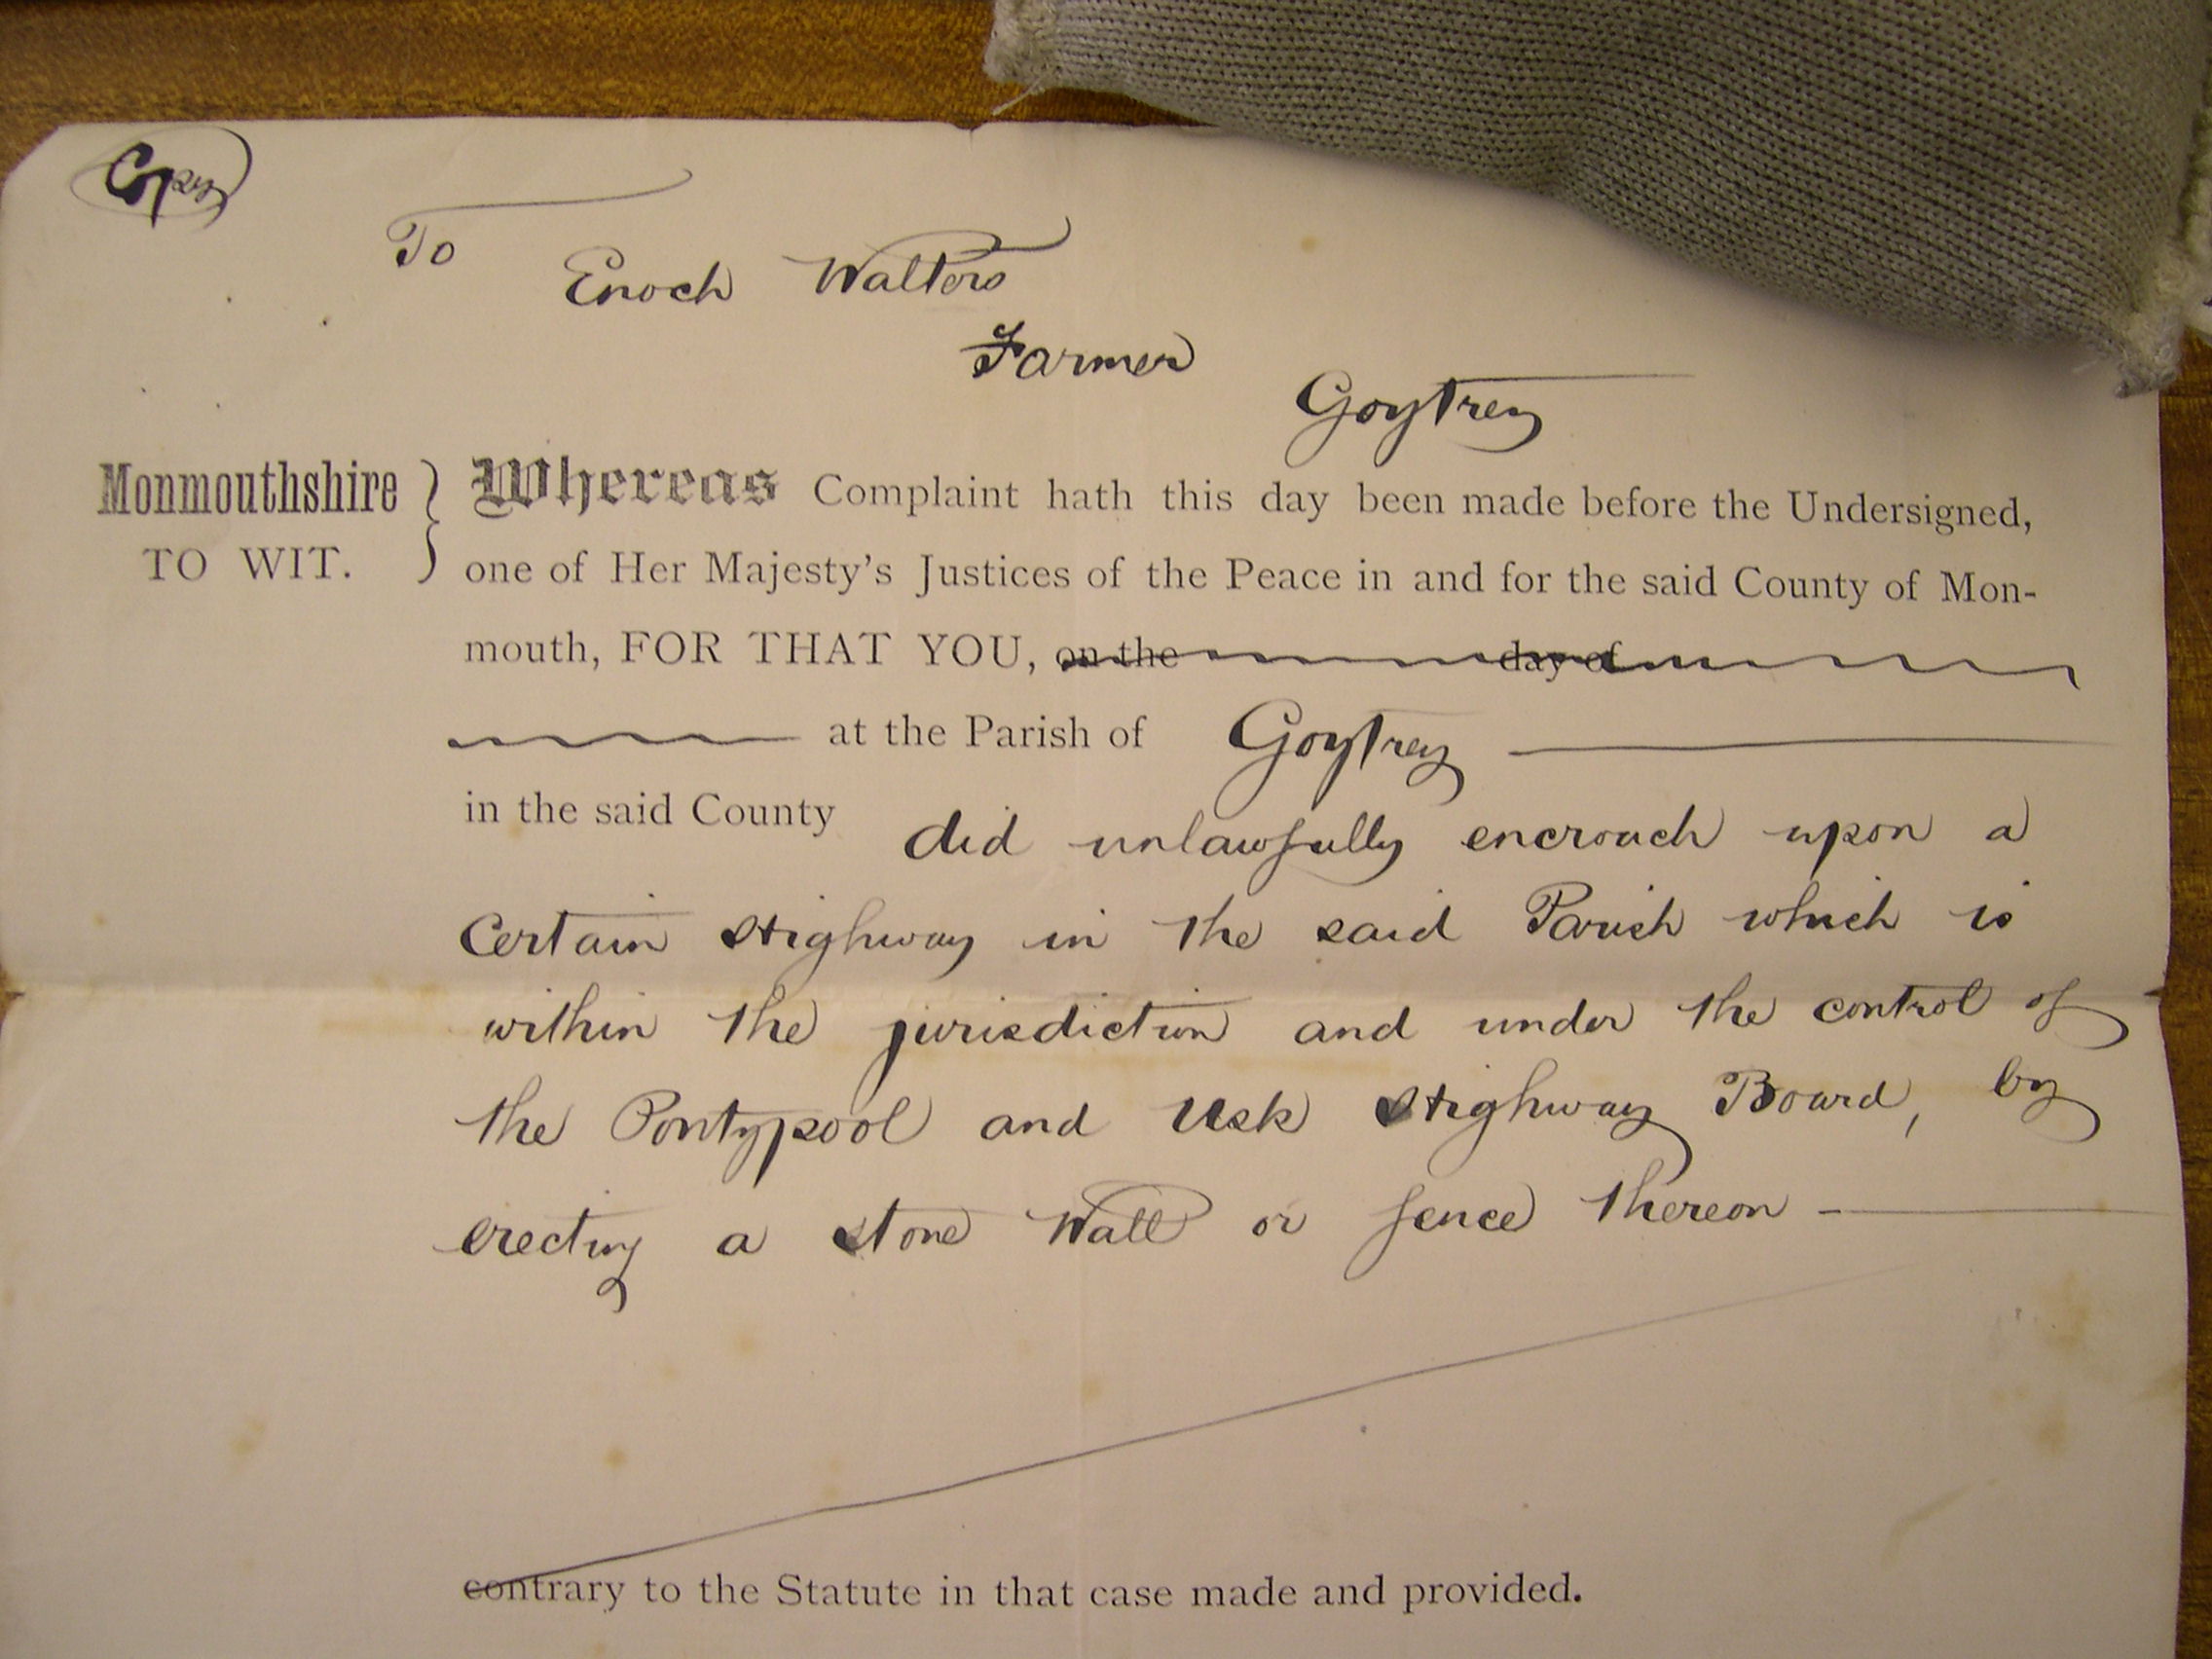 Copy
To
Enoch Walters
Farmer
Goytrey
Monmouthshire
TO WIT.
Whereas Complaint hath this day been made before the Undersigned,
one of Her Majesty's Justices of the Peace in and for the said County of Mon-
mouth, FOR THAT YOU, on the day of
at the Parish of Goytrey
in the said County did unlawfully encroach upon a
Certain Highway in the said Parish which is
within the jurisdiction and under the control of
the Pontypool and Usk Highway Board, by
erecting a stone Wall or fence thereon
contrary to the Statute in that case made and provided.